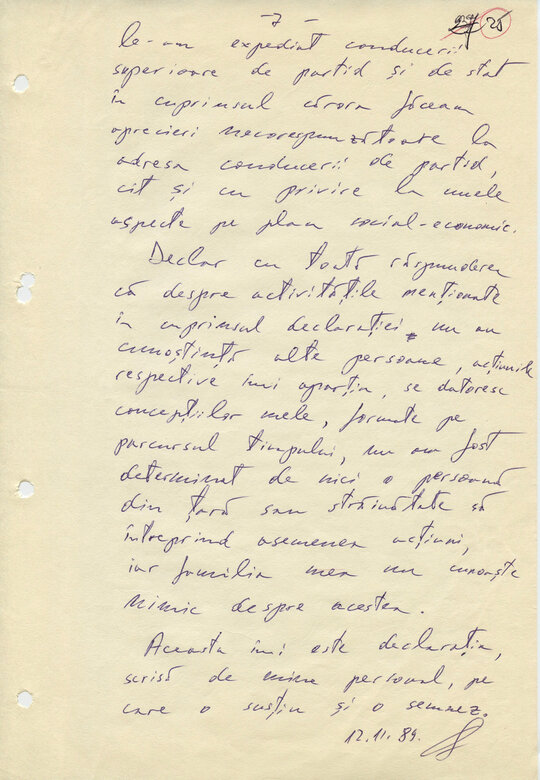 - 7 -
25
le-am expediat conducerii
superioare de partid și de stat
în cuprinsul cărora făceam
aprecieri necorespunzătoare la
adresa conducerii de partid,
cît și cu privire la unele
aspecte pe plan social-economic.
Declar cu toată răspunderea
că despre activitățile menționate
în cuprinsul declarației nu au
cunoștință alte persoane, acțiunile
respective îmi aparțin, se datoresc
concepțiilor mele, formate pe
parcursul timpului, nu am fost
determinat de nici o persoană
din țară sau străinătate să
întreprind asemenea acțiuni,
iar familia mea nu cunoaște
nimic despre acestea.
Aceasta îmi este declarația,
scrisă de mine personal, pe
care o susțin și o semnez.
12.II.89.